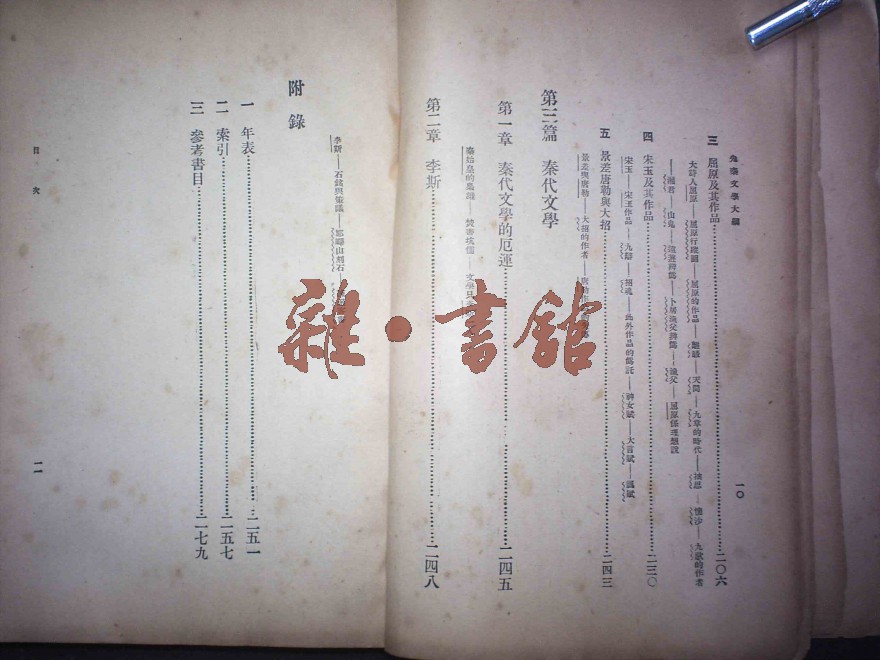 先秦文學大綱
一〇
三　屈原及其作品……二〇六
大詩人屈原——屈原行踪圖——屈原的作品——離騷——天問——九章的時代——抽思——懷沙——九歌的作者
——湘君——山鬼——遠遊辨僞——卜居漁父辨僞——漁父——屈原係理想說
四　宋玉及其作品……二三〇
宋玉——宋玉作品——九辯——招魂——此外作品的僞託——神女賦——大言賦——諷賦
五　景差唐勒與大招……二四三
景差與唐勒——大招的作者
第三篇　秦代文學
第一章　秦代文學的厄運……二四五
秦始皇的梟雄——焚書坑儒——文學
第二章　李斯……二四八
李斯——石銘與策議——鄒嶧山刻石
附錄
一　年表……二五一
二　索引……二五七
三　參考書目……二七九
目次
一一
雜·書館